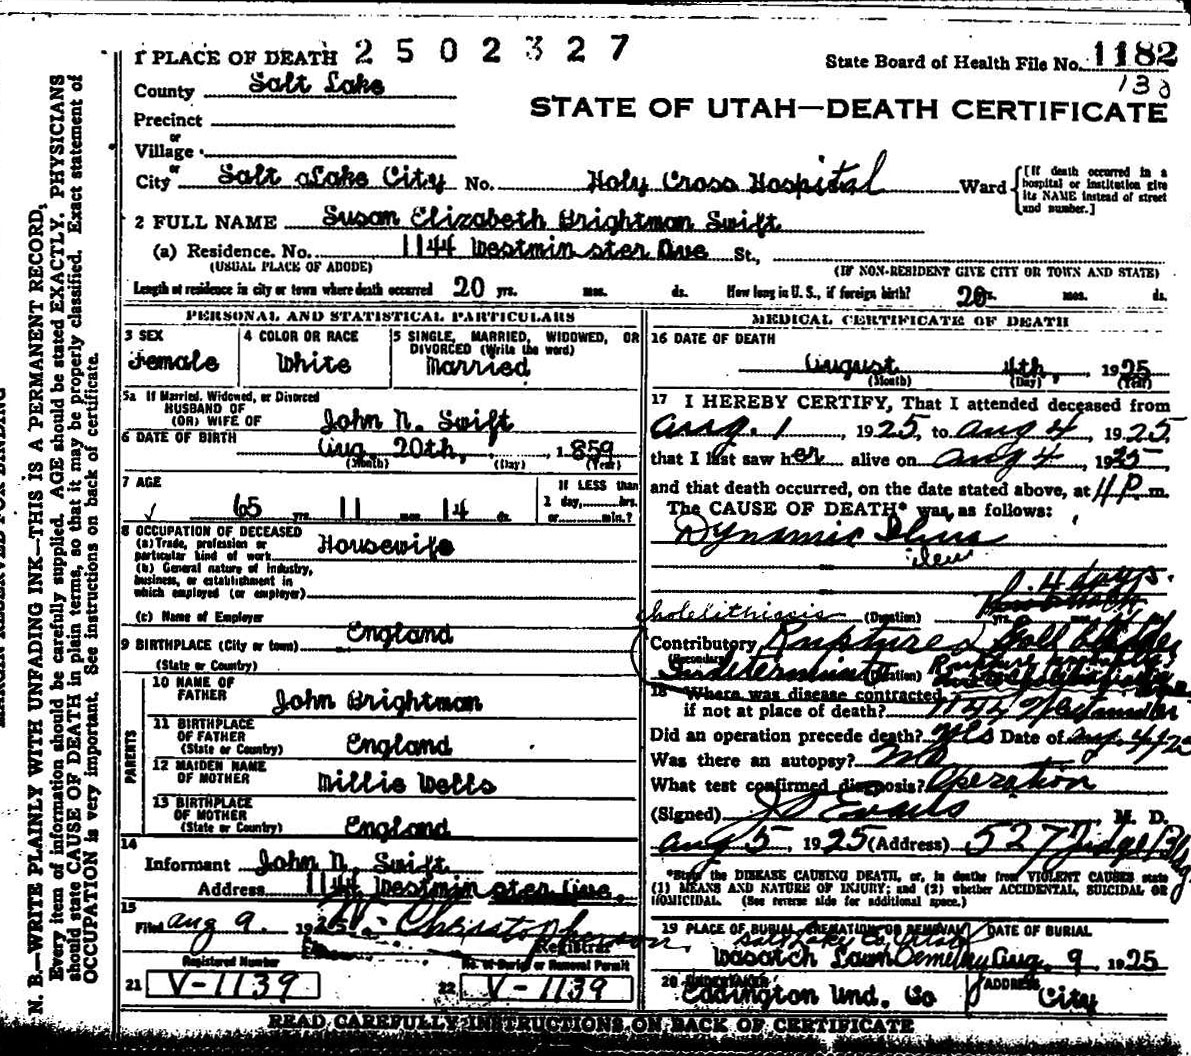 MARGIN RESERVED FOR BINDING
N. B.—WRITE PLAINLY WITH UNFADING INK—THIS IS A PERMANENT RECORD,
Every item of information should be carefully supplied. AGE should be stated EXACTLY. PHYSICIANS
should state CAUSE OF DEATH in plain terms, so that it may be properly classified. Exact statement of
OCCUPATION is very important. See instructions on back of certificate.
1 PLACE OF DEATH 2502327
State Board of Health File No. 1182
130
County Salt Lake
STATE OF UTAH—DEATH CERTIFICATE
Precinct
or
Village
or
City Salt Lake City No. Holy Cross Hospital Ward
[If death occurred in a hospital or institution give its NAME instead of street and number.]
2 FULL NAME Susan Elizabeth Brightman Swift
(a) Residence. No. 1144 Westminster Ave St.,
(USUAL PLACE OF ABODE) (IF NON-RESIDENT GIVE CITY OR TOWN AND STATE)
Length of residence in city or town where death occurred 20 yrs. mos. ds. How long in U. S., if foreign birth? 20 yrs. mos. ds.
PERSONAL AND STATISTICAL PARTICULARS
3 SEX Female
4 COLOR OR RACE White
5 SINGLE, MARRIED, WIDOWED, OR DIVORCED (Write the word) Married
5a If Married, Widowed, or Divorced
HUSBAND OF
(OR) WIFE OF John N. Swift
6 DATE OF BIRTH Aug. 20th, 1859
(Month) (Day) (Year)
7 AGE 65 yrs. 11 mos. 14 ds.
IF LESS than 1 day, hrs. or min.?
8 OCCUPATION OF DECEASED
(a) Trade, profession or particular kind of work Housewife
(b) General nature of industry, business, or establishment in which employed (or employer)
(c) Name of Employer
9 BIRTHPLACE (City or town) England
(State or Country)
PARENTS
10 NAME OF FATHER John Brightman
11 BIRTHPLACE OF FATHER (State or Country) England
12 MAIDEN NAME OF MOTHER Millie Wells
13 BIRTHPLACE OF MOTHER (State or Country) England
14
Informant John N. Swift
Address 1144 Westminster Ave.
15
Filed Aug 9, 1925 Christopherson
Registrar
Registered Number No. of Burial or Removal Permit
21 V-1139 22 V-1139
MEDICAL CERTIFICATE OF DEATH
16 DATE OF DEATH
August 4th, 1925
(Month) (Day) (Year)
17 I HEREBY CERTIFY, That I attended deceased from
Aug. 1, 1925, to Aug 4, 1925,
that I last saw her alive on Aug 4, 1925,
and that death occurred, on the date stated above, at 4 P. m.
The CAUSE OF DEATH* was, as follows:
Dynamic Ileus
ileu
4 days.
Cholelithiasis (Duration) yrs. mos.
Contributory Ruptured Gall Bladder
(Secondary)
Indeterminate (Duration) Rupture
18 Where was disease contracted
if not at place of death? 1144 Westminster
Did an operation precede death? Yes Date of Aug. 4/25
Was there an autopsy? No
What test confirmed diagnosis? Operation
(Signed) Evans M. D.
Aug 5, 1925 (Address) 527 Judge Bldg
*State the DISEASE CAUSING DEATH, or, in deaths from VIOLENT CAUSES state
(1) MEANS AND NATURE OF INJURY; and (2) whether ACCIDENTAL, SUICIDAL OR
HOMICIDAL. (See reverse side for additional space.)
19 PLACE OF BURIAL, CREMATION OR REMOVAL DATE OF BURIAL
Salt Lake Co, Utah
Wasatch Lawn Cemetery Aug. 9 1925
20 UNDERTAKER ADDRESS
Eddington Und. Co City
READ CAREFULLY INSTRUCTIONS ON BACK OF CERTIFICATE